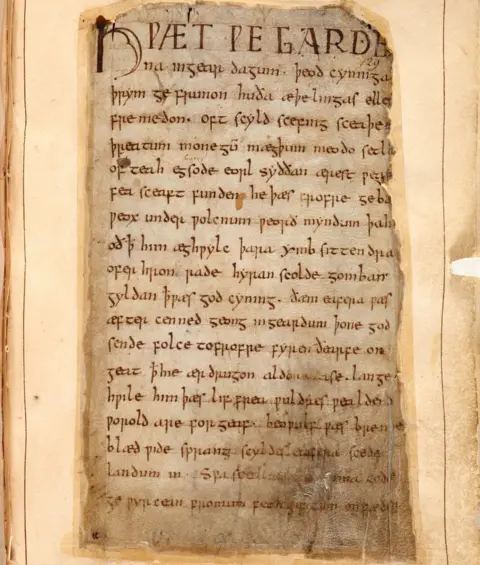 HǷÆT ǷE GARDE
na ingear dagum. þeod cyninga
þrym ge frunon huða æþelingas elle
fre medon. oft scyld scefing sceaþe
þreatum monegū mægþum meodo setla
of teah egsode eorl syððan ærest
fea sceaft funden he þæs frofre geba
ƿeox under ƿolcnum ƿeorð myndum þah
oð ꝥ him æghƿylc þara ymb sittendra
ofer hron rade hyran scolde gomban
gyldan ꝥ ƿæs god cyning. ðæm eafera ƿæs
æfter cenned geong ingeardum þone god
sende folce tofrofre fyren ðearfe on
geat ꝥ hie ær drugon aldor ase. lange
hƿile him þæs lif frea ƿuldres ƿealdend
ƿorold are for geaf. beoƿulf ƿæs breme
blæd ƿide sprang scyldes eafera scede
landum in. Sƿa sceal uma gode
ge ƿyrcean fromum feoh giftum